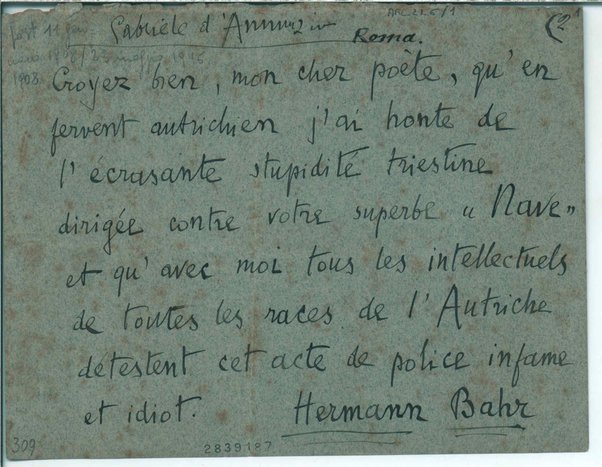 ARC.22.6/1
(2
Gabriele d'Annunzio
Roma.
post 11 gen.
1908
Croyez bien, mon cher poète, qu'en
fervent autrichien j'ai honte de
l'écrasante stupidité triestine
dirigée contre votre superbe "Nave"
et qu'avec moi tous les intellectuels
de toutes les races de l'Autriche
détestent cet acte de police infame
et idiot. Hermann Bahr
309
2839187